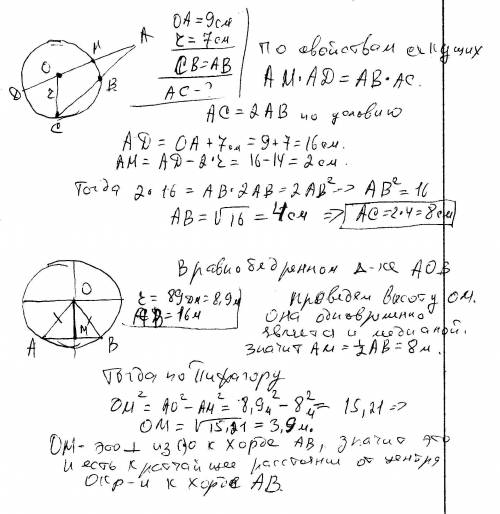 OA = 9 см
r = 7 см
CB = AB
AC - ?
M
A
O
B
D
r
C
По свойствам секущих
AM · AD = AB · AC.
AC = 2AB по условию
AD = OA + 7 см = 9 + 7 = 16 см.
AM = AD - 2·r = 16 - 14 = 2 см.
Тогда 2·16 = AB · 2AB = 2AB² => AB² = 16
AB = √16 = 4 см => AC = 2·4 = 8 см
В равнобедренном Δ-ке AOB
проведем высоту OM.
Она одновременно
является и медианой.
Значит AM = ½ AB = 8 м.
O
A
M
B
r = 89 дм = 8,9 м
AB = 16 м
Тогда по Пифагору
OM² = AO² - AM² = 8,9² - 8² = 15,21 =>
OM = √15,21 = 3,9 м.
OM - это ⊥ из O к хорде AB, значит это
и есть кратчайшее расстояние от центра
окр-и к хорде AB.